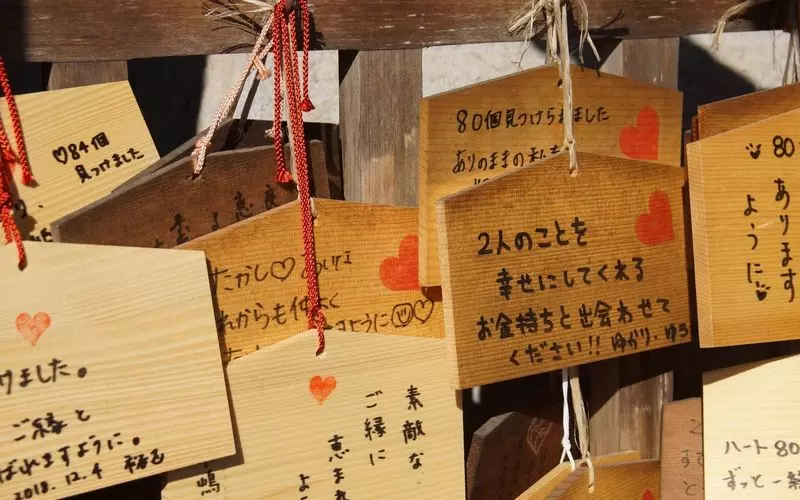 ♡84個
見つけました
80個見つけられました
ありのままの
2人のことを
幸せにしてくれる
お金持ちと出会わせて
ください!! ゆかり・ゆう
80
あります
ように
たかし♡
れからも仲よく
ように
けました。
ご縁と
ばれますように。
2018.12.4
素敵な
ご縁に
恵まれ
嶋
ハート80
ずっと一緒